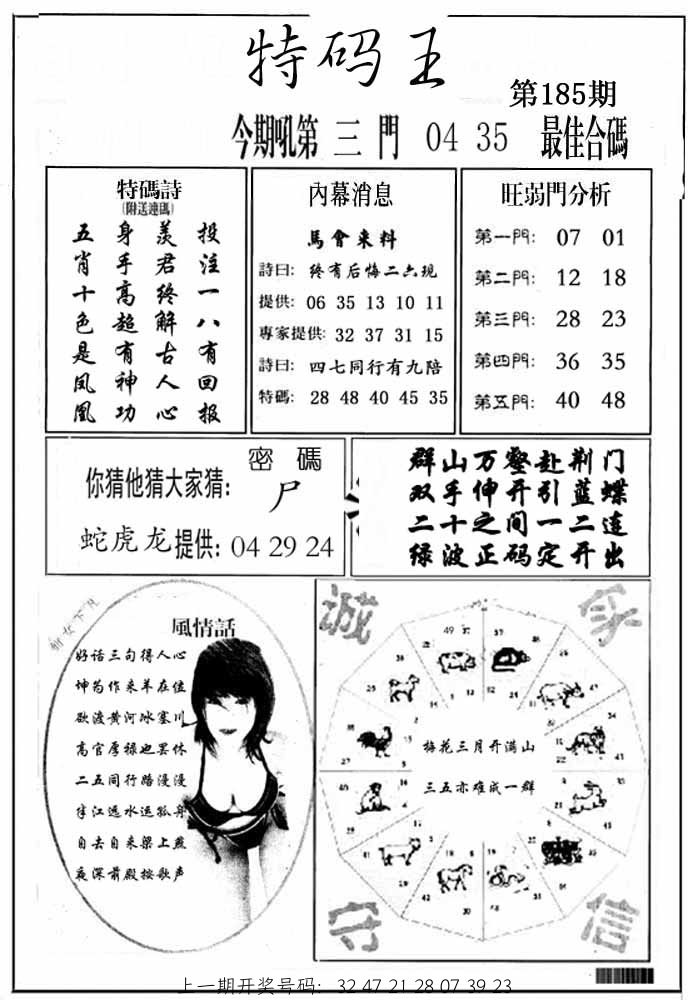 特码王
第185期
今期吼第 三 門 04 35 最佳合碼
特碼詩
(附送連碼)
投注一八有回报
羡君终解古人心
身手高超有神功
五肖十色是凤凰
內幕消息
馬會来料
詩曰: 终有后悔二六现
提供: 06 35 13 10 11
專家提供: 32 37 31 15
詩曰: 四七同行有九陪
特碼: 28 48 40 45 35
旺弱門分析
第一門: 07 01
第二門: 12 18
第三門: 28 23
第四門: 36 35
第五門: 40 48
密 碼
你猜他猜大家猜: 尸
蛇虎龙提供: 04 29 24
群山万壑赴荆门
双手伸开引蓝蝶
二十之间一二连
绿波正码定开出
風情話
好话三句得人心
坤为作来羊在位
欲渡黄河冰塞川
高官厚禄也罢休
二五同行路漫漫
江远水运孤舟
自去自来梁上燕
夜深前殿按歌声
诚
信
守
梅花三月开满山
三五亦难成一群
49 37
上一期开奖号码: 32 47 21 28 07 39 23